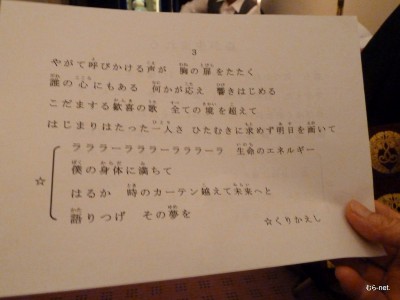 3
やがて呼びかける声が 胸の扉をたたく
誰の心にもある 何かが応え 響きはじめる
こだまする歓喜の歌 全ての境を超えて
はじまりはたった一人さ ひたむきに求めず明日を画いて
ラララーラララーラララーラ 生命のエネルギー
僕の身体に満ちて
☆ はるか 時のカーテン越えて未来へと
語りつげ その夢を
☆くりかえし
む6-net.